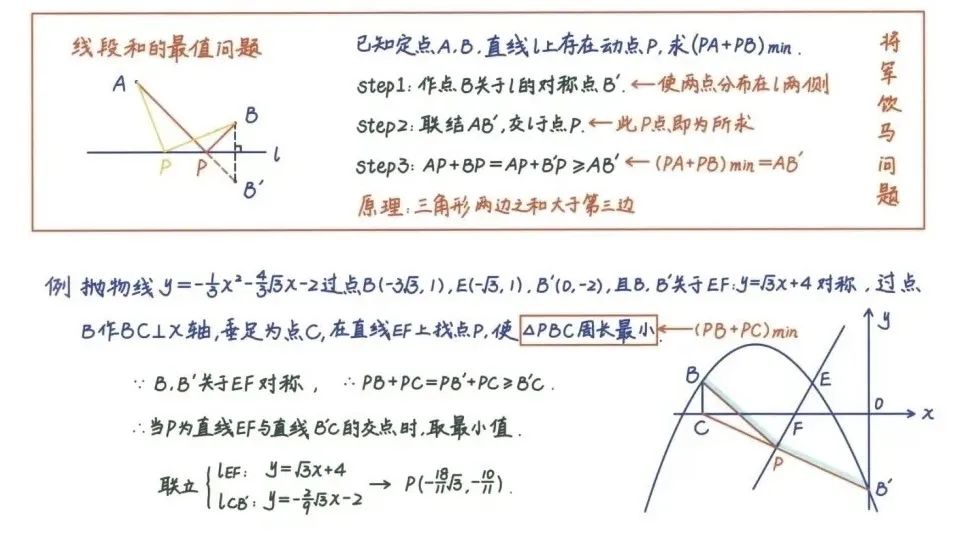 线段和的最值问题
A
B
P
P
l
B′
已知定点A,B,直线l上存在动点P,求(PA+PB)min.
step1:作点B关于l的对称点B′. ←使两点分布在l两侧
step2:联结AB′,交l于点P. ←此P点即为所求
step3:AP+BP=AP+B′P≥AB′ ←(PA+PB)min=AB′
原理:三角形两边之和大于第三边
将军饮马问题
例 抛物线y=-1/3x²-4/3√3x-2过点B(-3√3,1),E(-√3,1),B′(0,-2),且B,B′关于EF:y=√3x+4对称,过点
B作BC⊥X轴,垂足为点C,在直线EF上找点P,使△PBC周长最小. ←(PB+PC)min
∵B,B′关于EF对称, ∴PB+PC=PB′+PC≥B′C.
∴当P为直线EF与直线B′C的交点时,取最小值.
联立{lEF: y=√3x+4
lCB′: y=-2/9√3x-2 → P(-18/11√3,-10/11).
y
B
E
O
x
C
F
P
B′